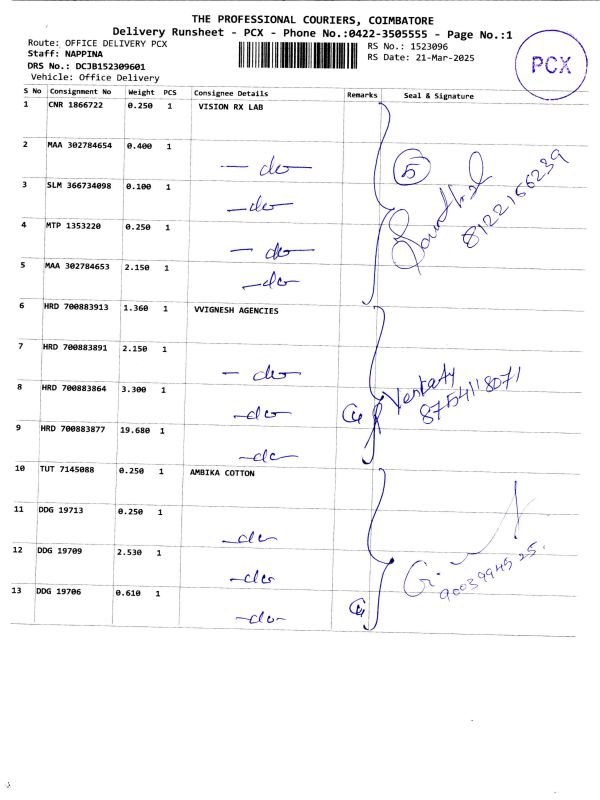 THE PROFESSIONAL COURIERS, COIMBATORE
Delivery Runsheet - PCX - Phone No.:0422-3505555 - Page No.:1
Route: OFFICE DELIVERY PCX
RS No.: 1523096
Staff: NAPPINA
RS Date: 21-Mar-2025
DRS No.: DCJB152309601
Vehicle: Office Delivery
PCX
S No Consignment No Weight PCS Consignee Details Remarks Seal & Signature
1 CNR 1866722 0.250 1 VISION RX LAB
2 MAA 302784654 0.400 1
— do —
5
3 SLM 366734098 0.100 1
— do —
8122166239
4 MTP 1353220 0.250 1
— do —
5 MAA 302784653 2.150 1
— do —
6 HRD 700883913 1.360 1 VVIGNESH AGENCIES
7 HRD 700883891 2.150 1
— do —
8 HRD 700883864 3.300 1
— do —
8754118071
9 HRD 700883877 19.680 1
— do —
10 TUT 7145088 0.250 1 AMBIKA COTTON
11 DDG 19713 0.250 1
— do —
12 DDG 19709 2.530 1
— do —
9003994525
13 DDG 19706 0.610 1
— do —